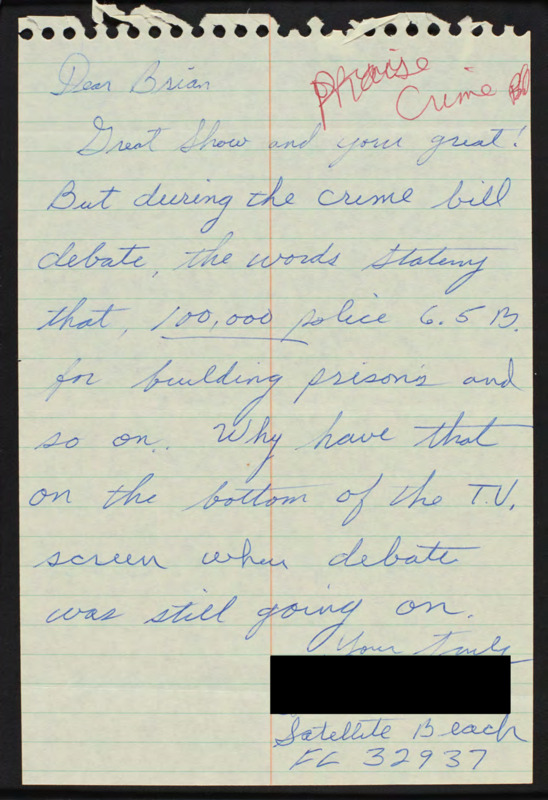 Dear Brian
Praise
Crime Bill
Great Show and your great!
But during the crime bill
debate, the words stateing
that, 100,000 police 6.5 B.
for building prisons and
so on. Why have that
on the bottom of the T.V.
screen when debate
was still going on.
Your Truly
Satellite Beach
FL 32937